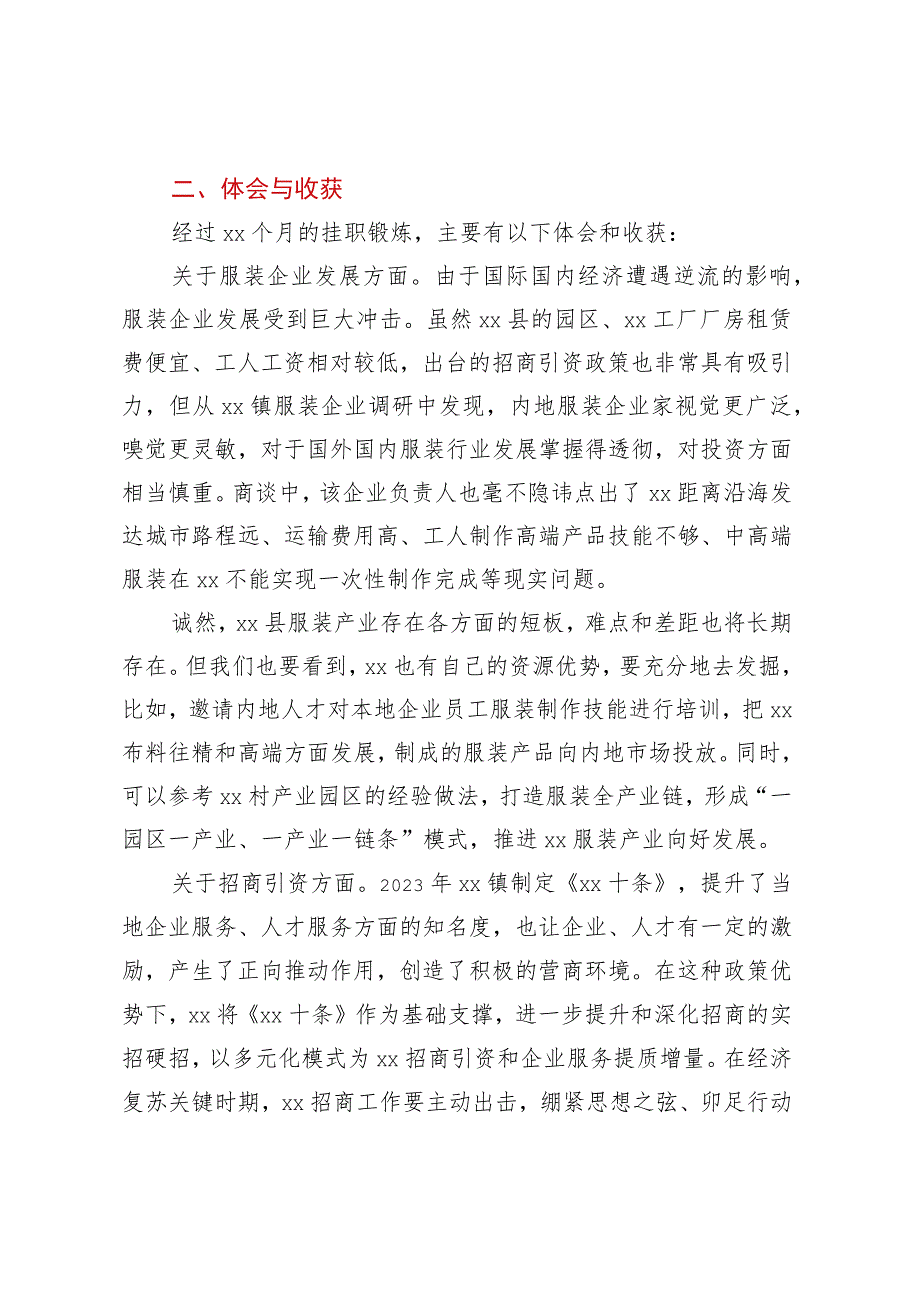 二、体会与收获
经过 xx 个月的挂职锻炼，主要有以下体会和收获：
关于服装企业发展方面。由于国际国内经济遭遇逆流的影响，
服装企业发展受到巨大冲击。虽然 xx 县的园区、xx 工厂厂房租赁
费便宜、工人工资相对较低，出台的招商引资政策也非常具有吸引
力，但从 xx 镇服装企业调研中发现，内地服装企业家视觉更广泛，
嗅觉更灵敏，对于国外国内服装行业发展掌握得透彻，对投资方面
相当慎重。商谈中，该企业负责人也毫不隐讳点出了 xx 距离沿海发
达城市路程远、运输费用高、工人制作高端产品技能不够、中高端
服装在 xx 不能实现一次性制作完成等现实问题。
诚然，xx 县服装产业存在各方面的短板，难点和差距也将长期
存在。但我们也要看到，xx 也有自己的资源优势，要充分地去发掘，
比如，邀请内地人才对本地企业员工服装制作技能进行培训，把 xx
布料往精和高端方面发展，制成的服装产品向内地市场投放。同时，
可以参考 xx 村产业园区的经验做法，打造服装全产业链，形成“一
园区一产业、一产业一链条”模式，推进 xx 服装产业向好发展。
关于招商引资方面。2023 年 xx 镇制定《xx 十条》，提升了当
地企业服务、人才服务方面的知名度，也让企业、人才有一定的激
励，产生了正向推动作用，创造了积极的营商环境。在这种政策优
势下，xx 将《xx 十条》作为基础支撑，进一步提升和深化招商的实
招硬招，以多元化模式为 xx 招商引资和企业服务提质增量。在经济
复苏关键时期，xx 招商工作要主动出击，绷紧思想之弦、卯足行动